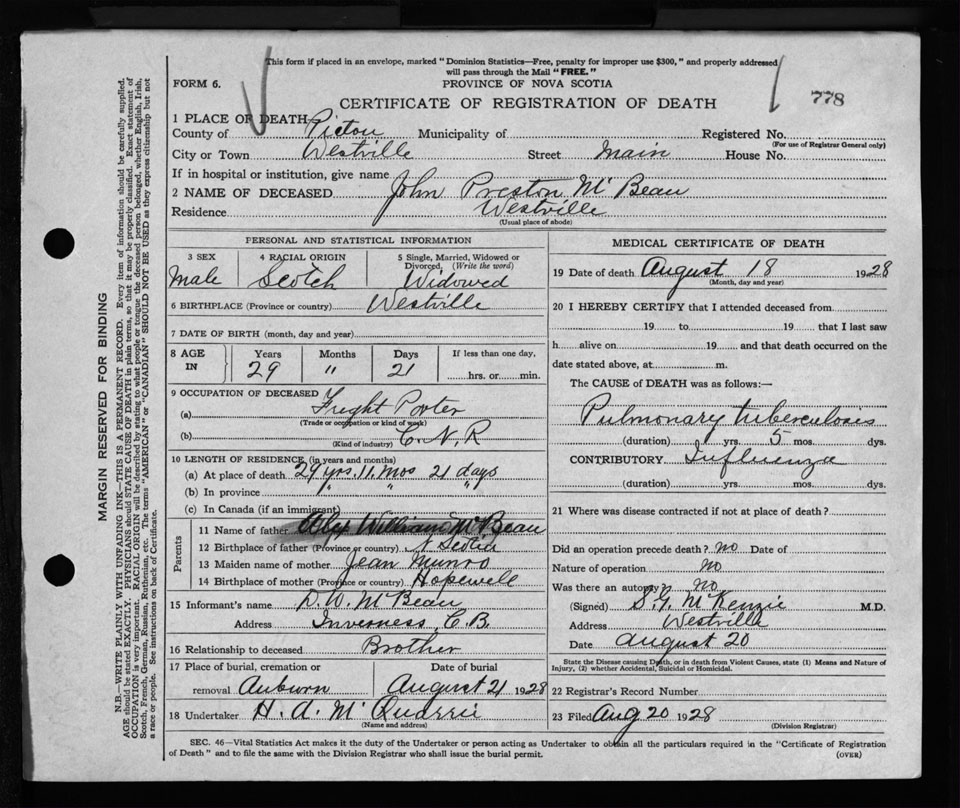 This form if placed in an envelope, marked "Dominion Statistics—Free, penalty for improper use $300," and properly addressed
will pass through the Mail "FREE."
FORM 6.
PROVINCE OF NOVA SCOTIA
CERTIFICATE OF REGISTRATION OF DEATH
778
1 PLACE OF DEATH
County of Pictou Municipality of Registered No.
(For use of Registrar General only)
City or Town Westville Street Main House No.
If in hospital or institution, give name
2 NAME OF DECEASED John Preston McBean
Residence Westville
(Usual place of abode)
PERSONAL AND STATISTICAL INFORMATION
3 SEX 4 RACIAL ORIGIN 5 Single, Married, Widowed or
Divorced, (Write the word)
Male Scotch Widowed
6 BIRTHPLACE (Province or country) Westville
7 DATE OF BIRTH (month, day and year)
8 AGE IN Years Months Days If less than one day,
29 " 21 hrs. or min.
9 OCCUPATION OF DECEASED
(a) Freight Porter
(Trade or occupation or kind of work)
(b) C.N.R
(Kind of industry)
10 LENGTH OF RESIDENCE (in years and months)
(a) At place of death 29 yrs. 11 mos 21 days
(b) In province " " "
(c) In Canada (if an immigrant)
Parents
11 Name of father William McBean
12 Birthplace of father (Province or country) N Scotia
13 Maiden name of mother Jean Munro
14 Birthplace of mother (Province or country) Hopewell
15 Informant's name D. W. McBean
Address Inverness, C.B.
16 Relationship to deceased Brother
17 Place of burial, cremation or Date of burial
removal Auburn August 21 1928
18 Undertaker H. A. McQuarrie
(Name and address)
MEDICAL CERTIFICATE OF DEATH
19 Date of death August 18 1928
(Month, day and year)
20 I HEREBY CERTIFY that I attended deceased from
19 to 19 that I last saw
h alive on 19 and that death occurred on the
date stated above, at m.
The CAUSE of DEATH was as follows:—
Pulmonary tuberculosis
(duration) yrs. 5 mos. dys.
CONTRIBUTORY Influenza
(duration) yrs. mos. dys.
21 Where was disease contracted if not at place of death?
Did an operation precede death? no Date of
Nature of operation no
Was there an autopsy? no
(Signed) S. G. McKenzie M.D.
Address Westville
Date August 20
State the Disease causing Death, or in death from Violent Causes, state (1) Means and Nature of
Injury, (2) whether Accidental, Suicidal or Homicidal.
22 Registrar's Record Number
23 Filed Aug 20 1928
(Division Registrar)
SEC. 46—Vital Statistics Act makes it the duty of the Undertaker or person acting as Undertaker to obtain all the particulars required in the "Certificate of Registration
of Death" and to file the same with the Division Registrar who shall issue the burial permit. (OVER)
MARGIN RESERVED FOR BINDING
N.B.—WRITE PLAINLY WITH UNFADING INK—THIS IS A PERMANENT RECORD. Every item of information should be carefully supplied.
AGE should be stated EXACTLY. PHYSICIANS should STATE CAUSE OF DEATH in plain terms, so that it may be properly classified. Exact statement of
OCCUPATION is very important. RACIAL ORIGIN will be described by stating to what people or tongue the deceased person belonged, whether English, Irish,
Scotch, French, German, Russian, Ruthenian, etc. The terms "AMERICAN" or "CANADIAN" SHOULD NOT BE USED as they express citizenship but not
a race or people. See instructions on back of Certificate.